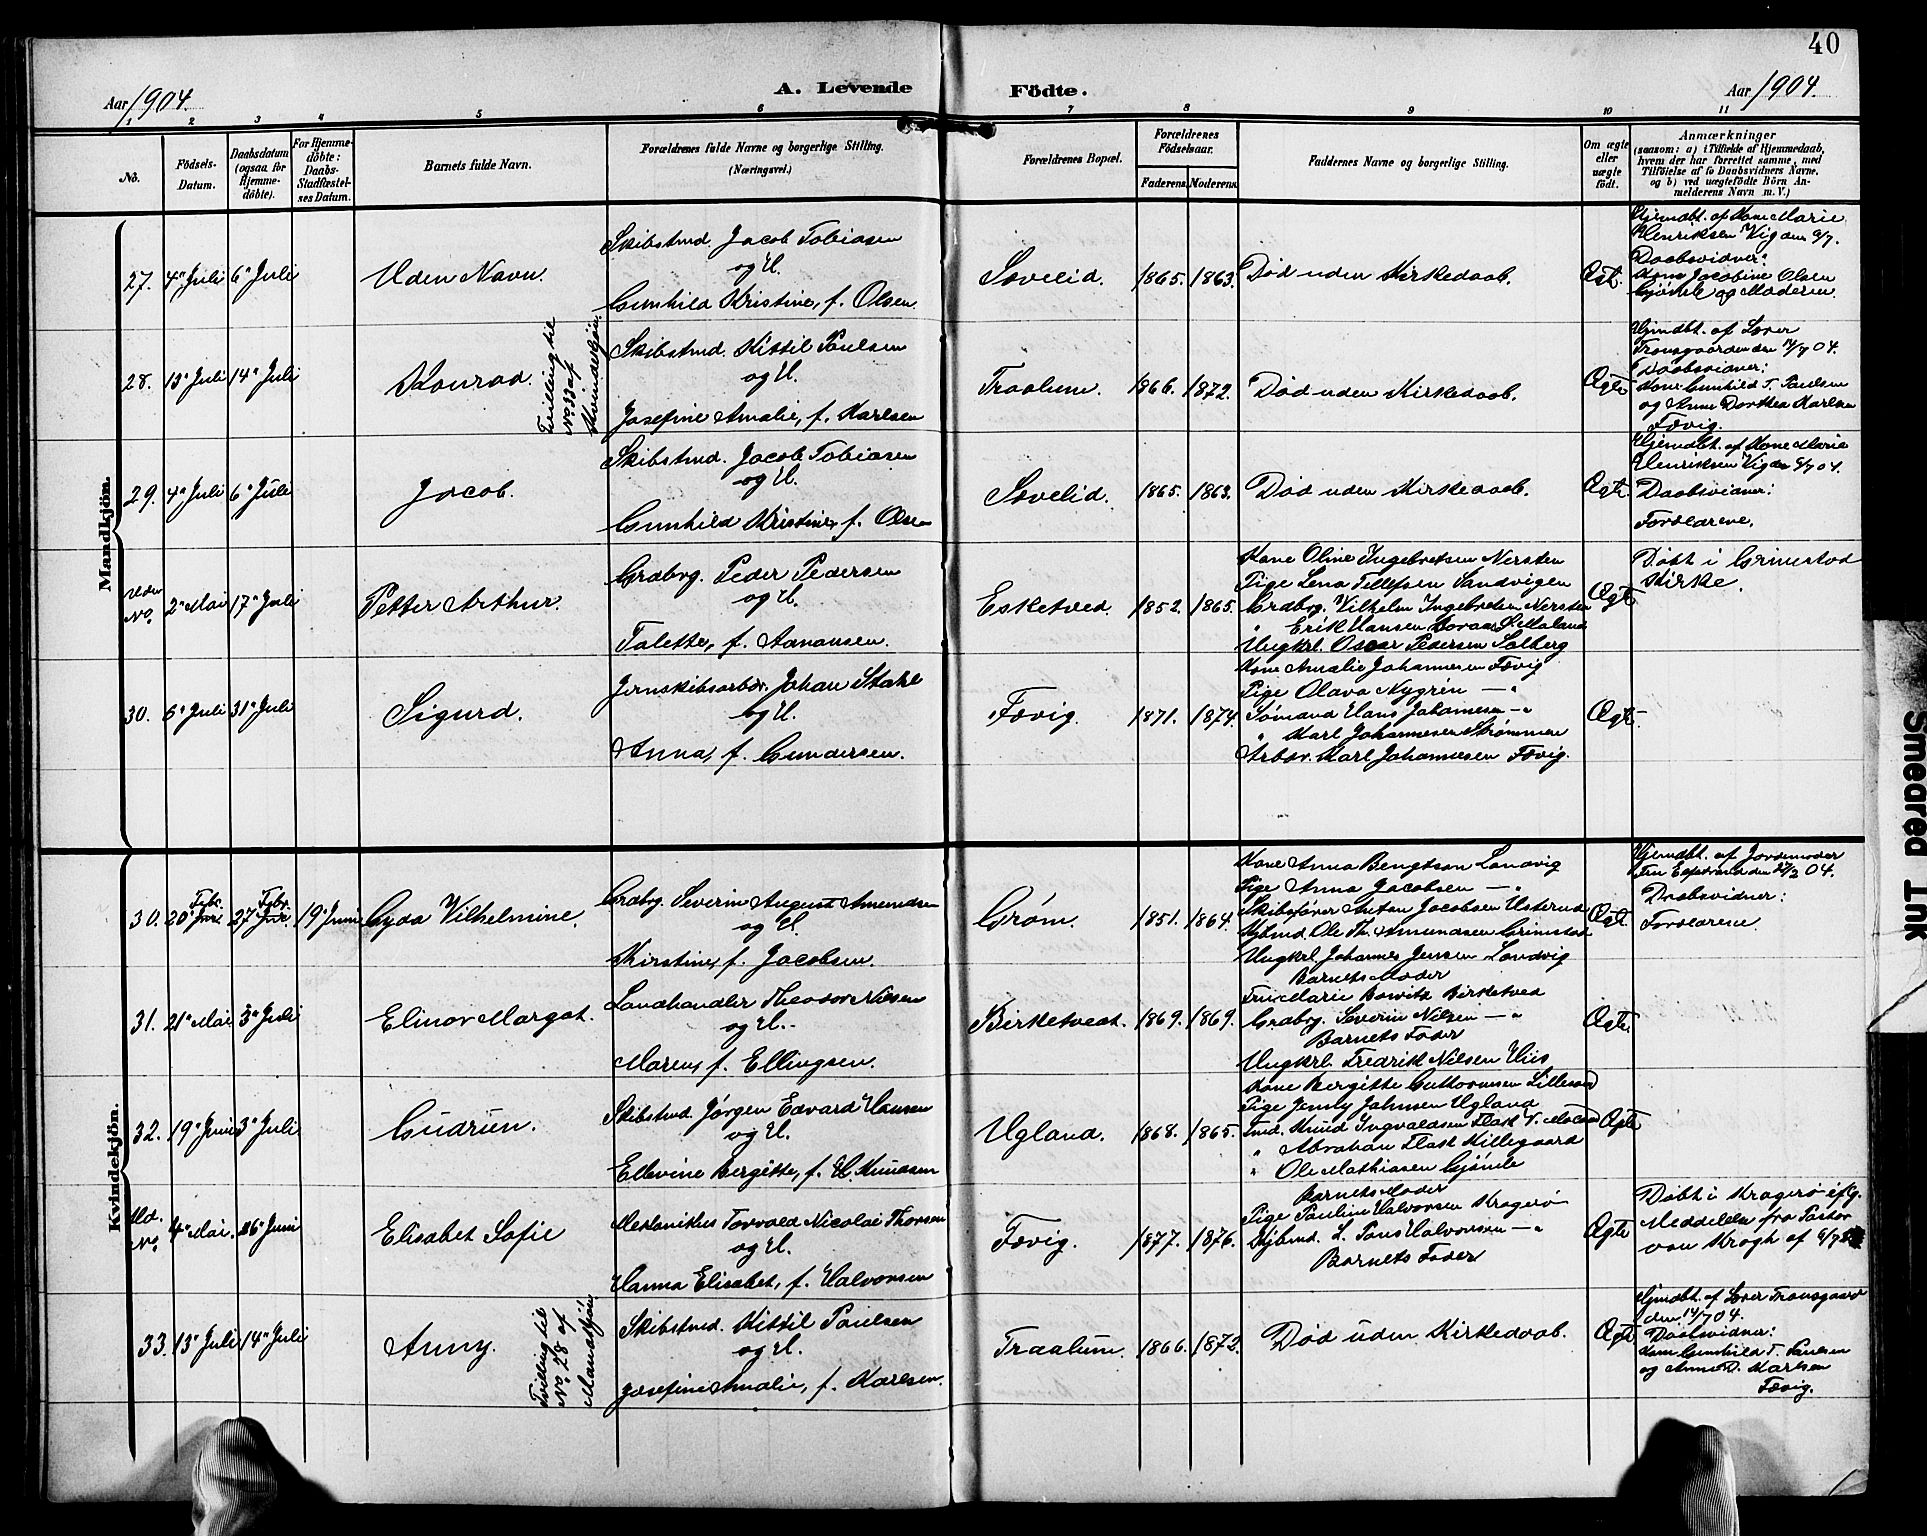 40
Aar 1904.
A. Levende Födte.
Aar 1904.
1 2 3 4 5 6 7 8 9 10 11
No.
Födsels-
Datum.
Daabsdatum
(ogsaa for
Hjemme-
döbte).
For Hjemme-
döbte:
Daabs-
Stadfæstel-
ses Datum.
Barnets fulde Navn.
Forældrenes fulde Navne og borgerlige Stilling.
(Næringsvei.)
Forældrenes Bopæl.
Forældrenes
Födselsaar.
Faderens. Moderens.
Faddernes Navne og borgerlige Stilling.
Om ægte
eller
uægte
født.
Anmærkninger
(saasom: a) i Tilfælde af Hjemmedaab,
hvem der har forrettet samme, med
Tilföielse af to Daabsvidners Navne,
og b) ved uægtefödte Börn An-
melderens Navn m. V.)
Mandkjön.
27. 4' Juli 6' Juli
Uden Navn.
Skibstmd. Jacob Tobiasen
og H.
Gunhild Kristine, f. Olsen.
Sævelid. 1865. 1863.
Død uden Kirkedaab.
Ægt.
Hjemdbt. af Kone Marie
Henriksen Vig den 6/7.
Daabsvidner:
Kone Jacobine Olsen
Gjömle og Moderen.
28. 13' Juli 14' Juli
Konrad.
Tvilling til
No. 33 af
Kvindekjön.
Skibstmd. Kittil Paulsen
og H.
Josefine Amalie, f. Karlsen
Traalum. 1866. 1872.
Død uden Kirkedaab.
Ægte
Hjemdbt. af Lærer
Tronsgaard den 14/7 04.
Daabsvidner:
Kone Gunhild T. Paulsen
og Anne Dorthea Karlsen
Fævig.
29. 4' Juli 6' Juli
Jacob.
Skibstmd. Jacob Tobiasen
og H.
Gunhild Kristine, f. Olsen
Sævelid. 1865. 1863.
Død uden Kirkedaab.
Ægte.
Hjemdbt. af Kone Marie
Henriksen Vig den 6/7 04.
Daabsvidner:
Forældrene.
Uden
No. 2' Mai 17' Juli
Petter Arthur.
Grdbrg. Peder Pedersen
og H.
Talette, f. Aanansen.
Esketved. 1852. 1865.
Kone Oline Ingebretsen Nersten
Pige Lena Tellefsen Sandvigen
Grdbrg. Vilhelm Ingebretsen Nersten
" Erik Hansen Boraas L. Maland
Ungkrl. Oscar Pedersen Solberg
Ægte
Døbt i Grimstad
Kirke.
30. 6' Juli 31' Juli
Sigurd.
Jernskibsarbdr. Johan Stahl
og H.
Anna, f. Gundersen.
Fævig. 1871. 1874.
Kone Amalie Johannesen Fævig
Pige Olava Nygrén — "
Sømand Hans Johannesen — "
" Karl Johannesen Strømmen
Arbdr. Karl Johannesen Fævig.
Ægte.
Kvindekjön.
30. 20' Febr. 27' Febr. 19' Juni
Gyda Vilhelmine.
Grdbrg. Severin August Amundsen
og H.
Kirstine, f. Jacobsen.
Grøm. 1851. 1864.
Kone Anna Bengtson Landvig
Pige Anna Jacobsen — "
Skibsfører Anton Jacobsen Usterud
Kjbmd. Ole Th. Amundsen Grimstad
Ungkrl. Johannes Jensen Landvig
Ægte
Hjemdbt. af Jordemoder
Fru Egestrand den 27/2 04.
Daabsvidner:
Forældrene.
31. 21' Mai 3' Juli
Elinor Margot.
Landhandler Theodor Nilsen
og H.
Maren, f. Ellingsen.
Birketvedt. 1869. 1869.
Barnets Moder
Fru Marie Bowitz Birketved
Grdbrg. Severin Nilsen — "
Barnets Fader
Ungkrl. Fredrik Nilsen Viis
Ægte.
32. 19' Juni 3' Juli
Gudrun.
Skibstmd. Jørgen Edvard Hansen
og H.
Ellevine Bergitte, f. H. Knudsen
Ugland. 1868. 1865.
Kone Bergitte Guttormsen Lillesand
Pige Jenny Johnsen Ugland
Tmd. Knud Ingvaldsen Flask V. Moland
" Abraham Flask Killegaard
" Ole Mathiasen Gjömle
Ægte
Ud.
No. 4' Mai. 26' Juni
Elisabet Sofie
Mekanikus Torvald Nicolai Thorsen
og H.
Hanna Elisabet, f. Halvorsen
Fævig. 1877. 1876.
Barnets Moder
Pige Pauline Halvorsen Kragerö
Kjbmd. L. Tons Halvorsen — "
Barnets Fader
Ægte
Døbt i Kragerö iflg.
Meddelelse fra Pastor
von Krogh af
33. 13' Juli 14' Juli
Anny.
Tvilling til
No. 28 af
Mandkjön.
Skibstmd. Kittil Paulsen
og H.
Josefine Amalie, f. Karlsen.
Traalum. 1866. 1872.
Død uden Kirkedaab.
Ægte
Hjemdbt. af Lærer Tronsgaard
den 14/7 04.
Daabsvidner:
Kone Gunhild T. Paulsen
og Anne D. Karlsen
Fævig.
Smeared Ink